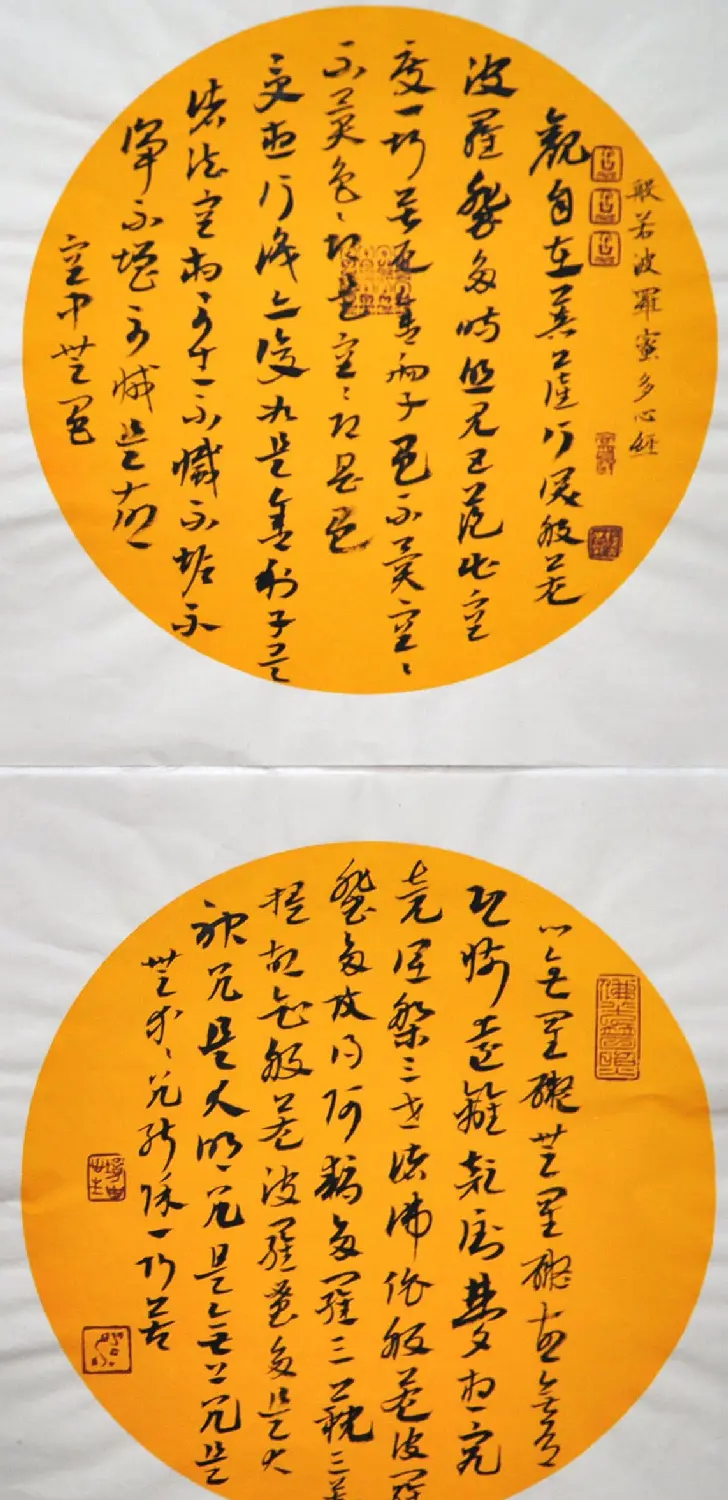 般若波羅蜜多心經
觀自在菩薩行深般若
波羅蜜多時照見五蘊皆空
度一切苦厄舍利子色不異空〻
不異色〻即是空〻即是色
受想行識亦復如是舍利子是
諸法空相不生不滅不垢不
淨不增不減是故
空中無色
心無罣礙無罣礙故無有
恐怖遠離顛倒夢想究
竟涅槃三世諸佛依般若波羅
蜜多故得阿耨多羅三藐三菩
提故知般若波羅蜜多是大
神咒是大明咒是無上咒是
無等〻咒能除一切苦